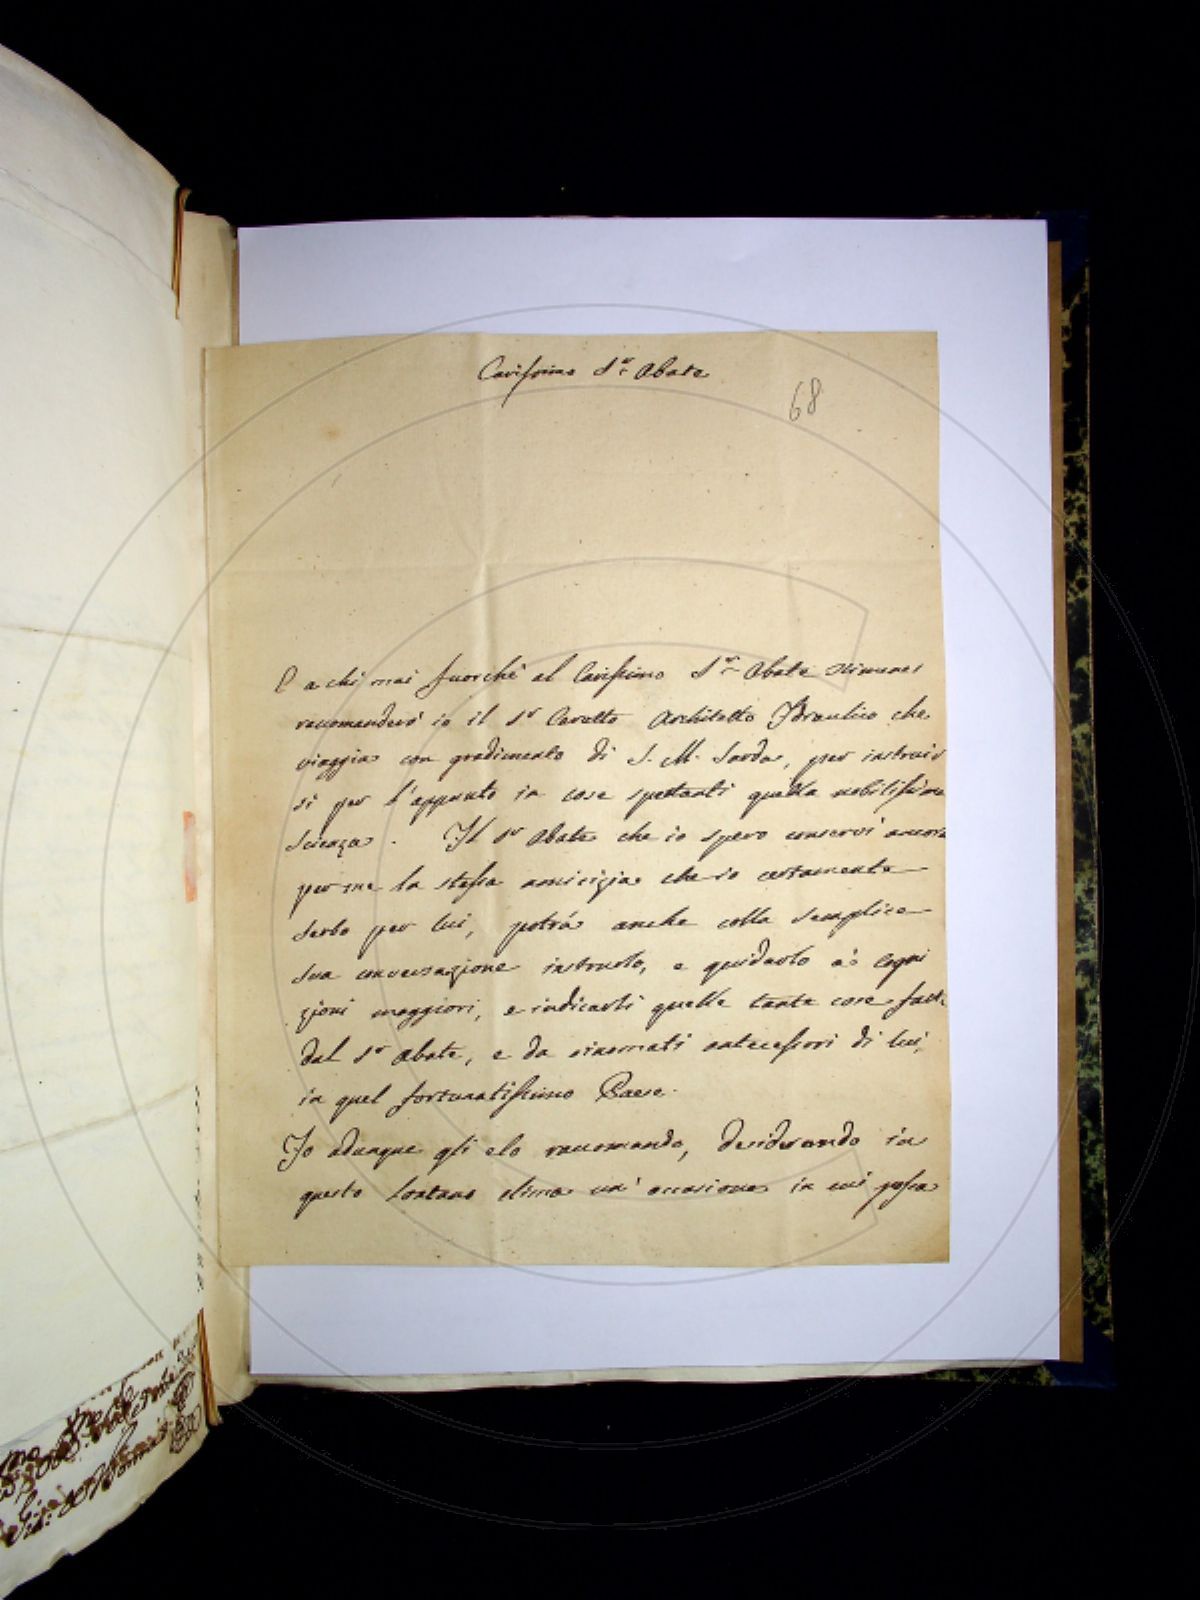 Carissimo S.r Abate
68
E a chi mai fuorchè al Carissimo S.r Abate Ximenes
raccomanderò io il S.r Ceretto Architetto Idraulico che
viaggia con gradimento di S. M. Sarda, per instruir
si per l'appunto in cose spettanti quella nobilissima
scienza. Il S.r Abate che io spero conservi ancora
per me la stessa amicizia che io certamente
serbo per lui, potrà anche colla semplice
sua conversazione instruirlo, e guidarlo a cogni
zioni maggiori, e indicarli quelle tante cose fatte
dal S.r Abate, e da rinomati antecessori di lui,
in quel fortunatissimo Paese.
Io adunque gli elo raccomando, desiderando in
questo lontano clima un' occasione in cui possa